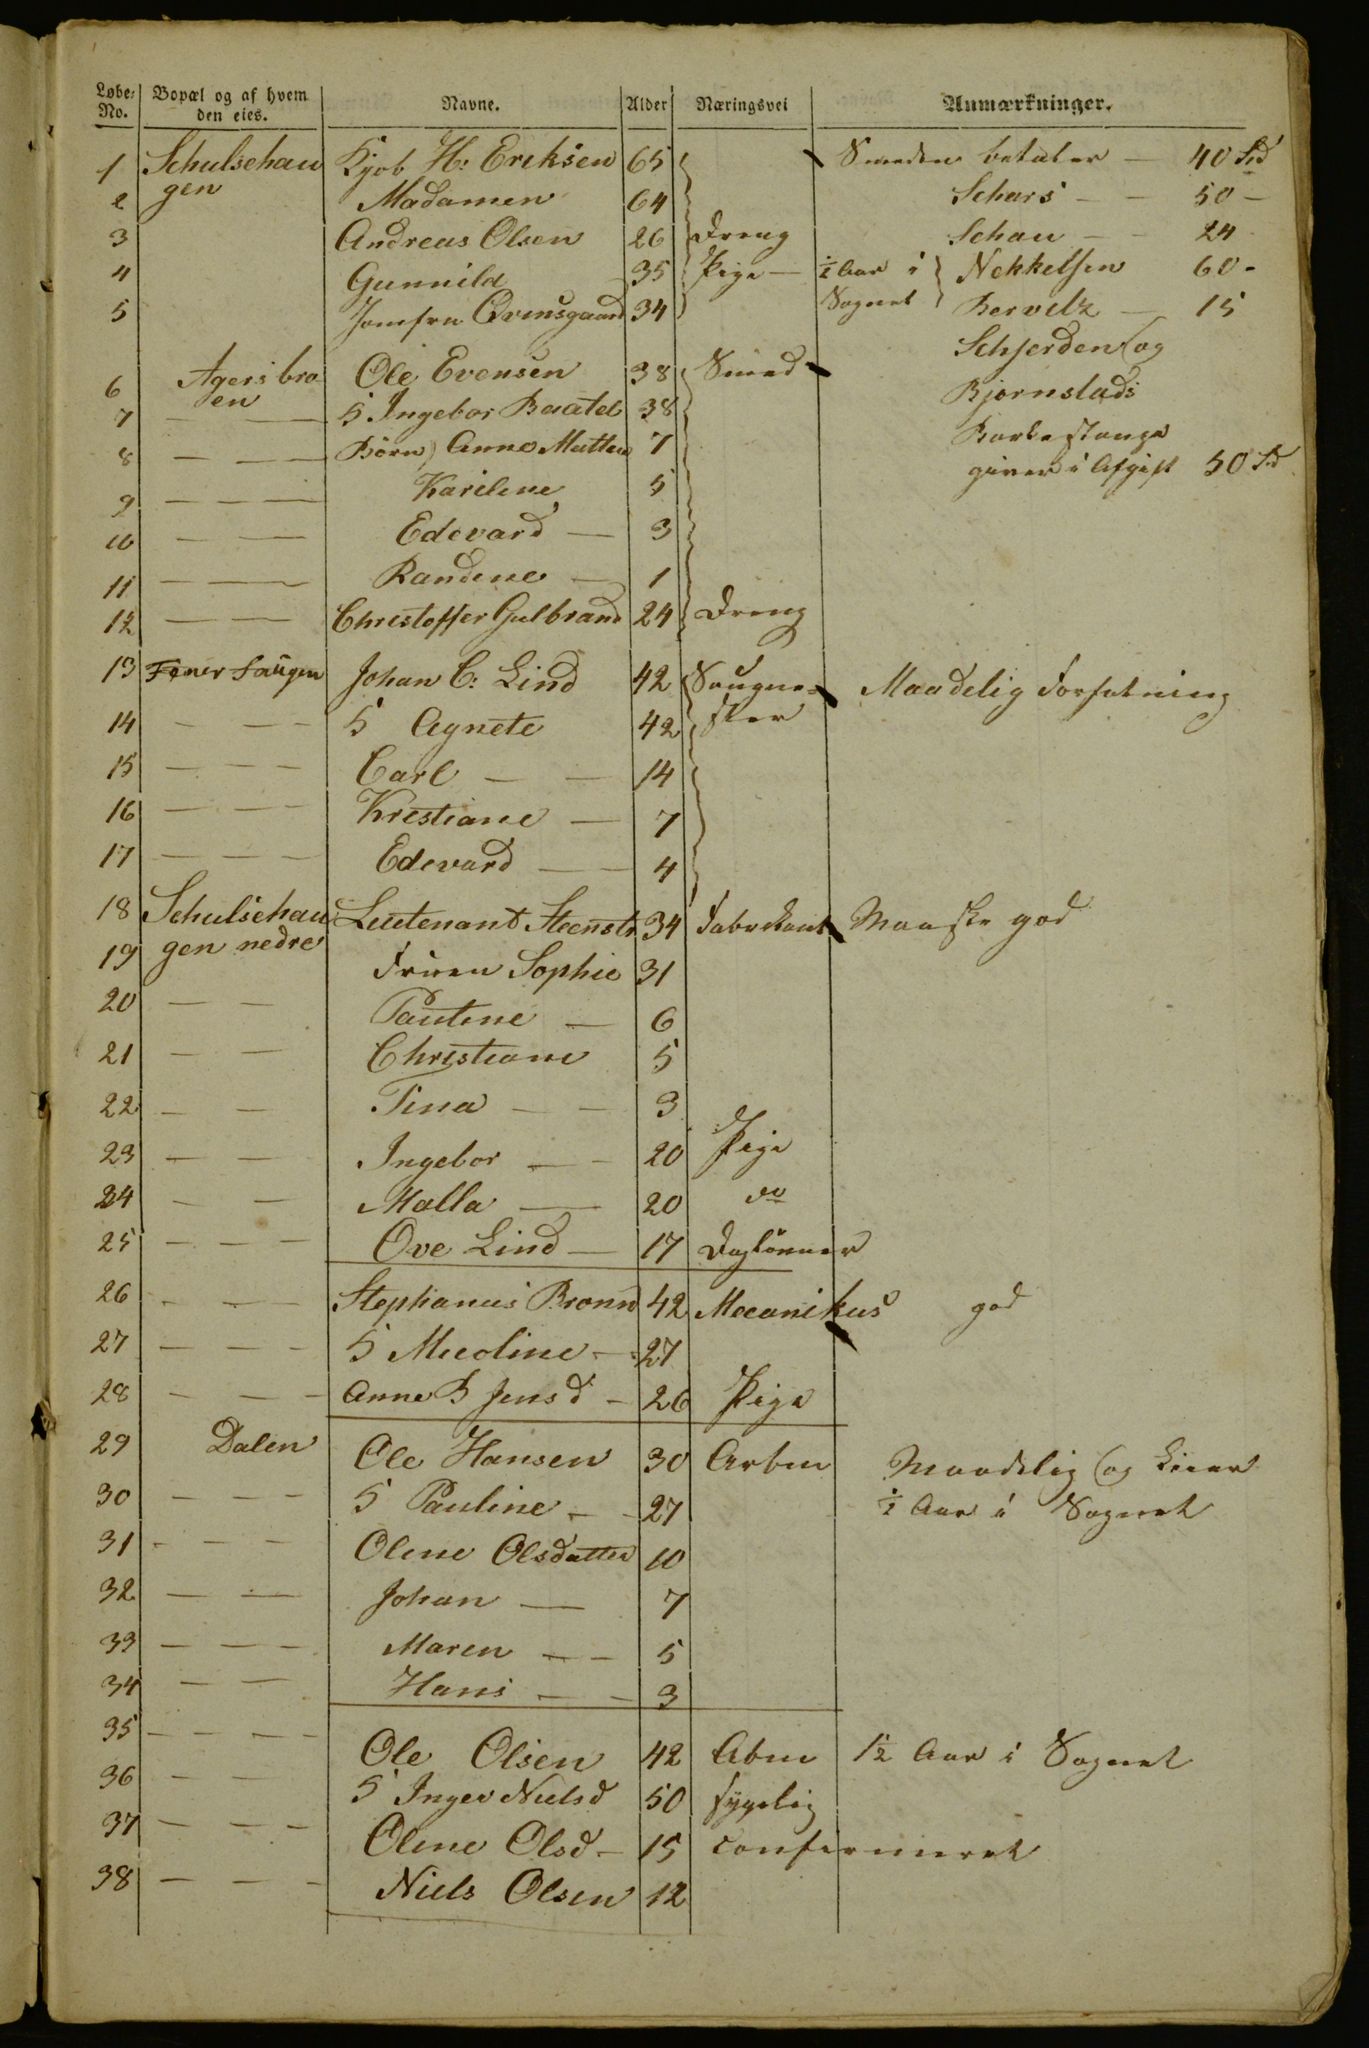 Løbe-No. Bopæl og af hvem den eies. Navne. Alder Næringsvei Anmærkninger.
1 Schulsehau Kjøb H: Eriksen 65 Smeden betaler — 40 Sd
2 gen Madamen 64 Schars — — 50 —
3 Andreas Olsen 26 Dreng Schau — — 24
4 Gunnild 35 Pige — ½ Aar i Nekkelsen 60 -
5 Jomfru Qvensgaard 34 Sognet Bervelz — 15
Schjerden og
6 Agersbro Ole Evensen 38 Smed Bjørnstads
7 en — H Ingebor Baatel 38
8 — — Børn) Anne Matten 7 giver i Afgift 50 Sd
9 — — — Karilene 5
10 — — Edevard — 3
11 — — Randene — 1
12 — — Christoffer Gulbrand 24 Dreng
13 Føner Saugen Johan C: Lind 42 Saugme- Maadelig Forfatning
14 — — — H Agnete 42 ster
15 — — — Carl — — 14
16 — — — Krestiane — 7
17 — — — Edevard — — 4
18 Schulsehau Leutenant Steenstr 34 Fabrikant Maaske god
19 gen nedre Fruen Sophie 31
20 — — Pautine — 6
21 — — Christiane 5
22 — — Tina — — 3
23 — — Ingebor — — 20 Pige
24 — — Malla — 20 do
25 — — — Ove Lind — 17 Daglønner
26 — — — Stephanus Bronn 42 Mecanikus god
27 — — — H Mecoline — 27
28 — — — Anne B Jensd — 26 Pige
29 Dalen Ole Hansen 30 Arbm Maadelig og Leier
30 — — — H Pauline — — 27 ½ Aar i Sognet
31 — — — Olene Olsdatter 10
32 — — Johan — 7
33 — — — Maren — — 5
34 — — Hans — — 3
35 — — — Ole Olsen 42 Abm 1½ Aar i Sognet
36 — — H Inger Nielsd 50 sygelig
37 — — — Olene Olsd — 15 confirmeret
38 — — — Niels Olsen 12